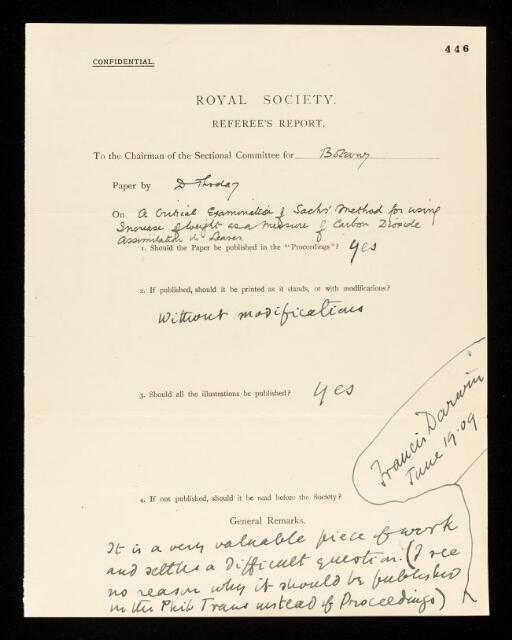 446
CONFIDENTIAL.
ROYAL SOCIETY.
REFEREE'S REPORT.
To the Chairman of the Sectional Committee for Botany
Paper by D Thoday
On A Critical Examination of Sachs' Method for using
Increase of weight as a measure of Carbon Dioxide
Assimilation in Leaves
1. Should the Paper be published in the "Proceedings"? Yes
2. If published, should it be printed as it stands, or with modifications?
Without modifications
3. Should all the illustrations be published? Yes
Francis Darwin
June 19.09
4. If not published, should it be read before the Society?
General Remarks.
It is a very valuable piece of work
and settles a difficult question. (I see
no reason why it should be published
in the Phil Trans instead of Proceedings)